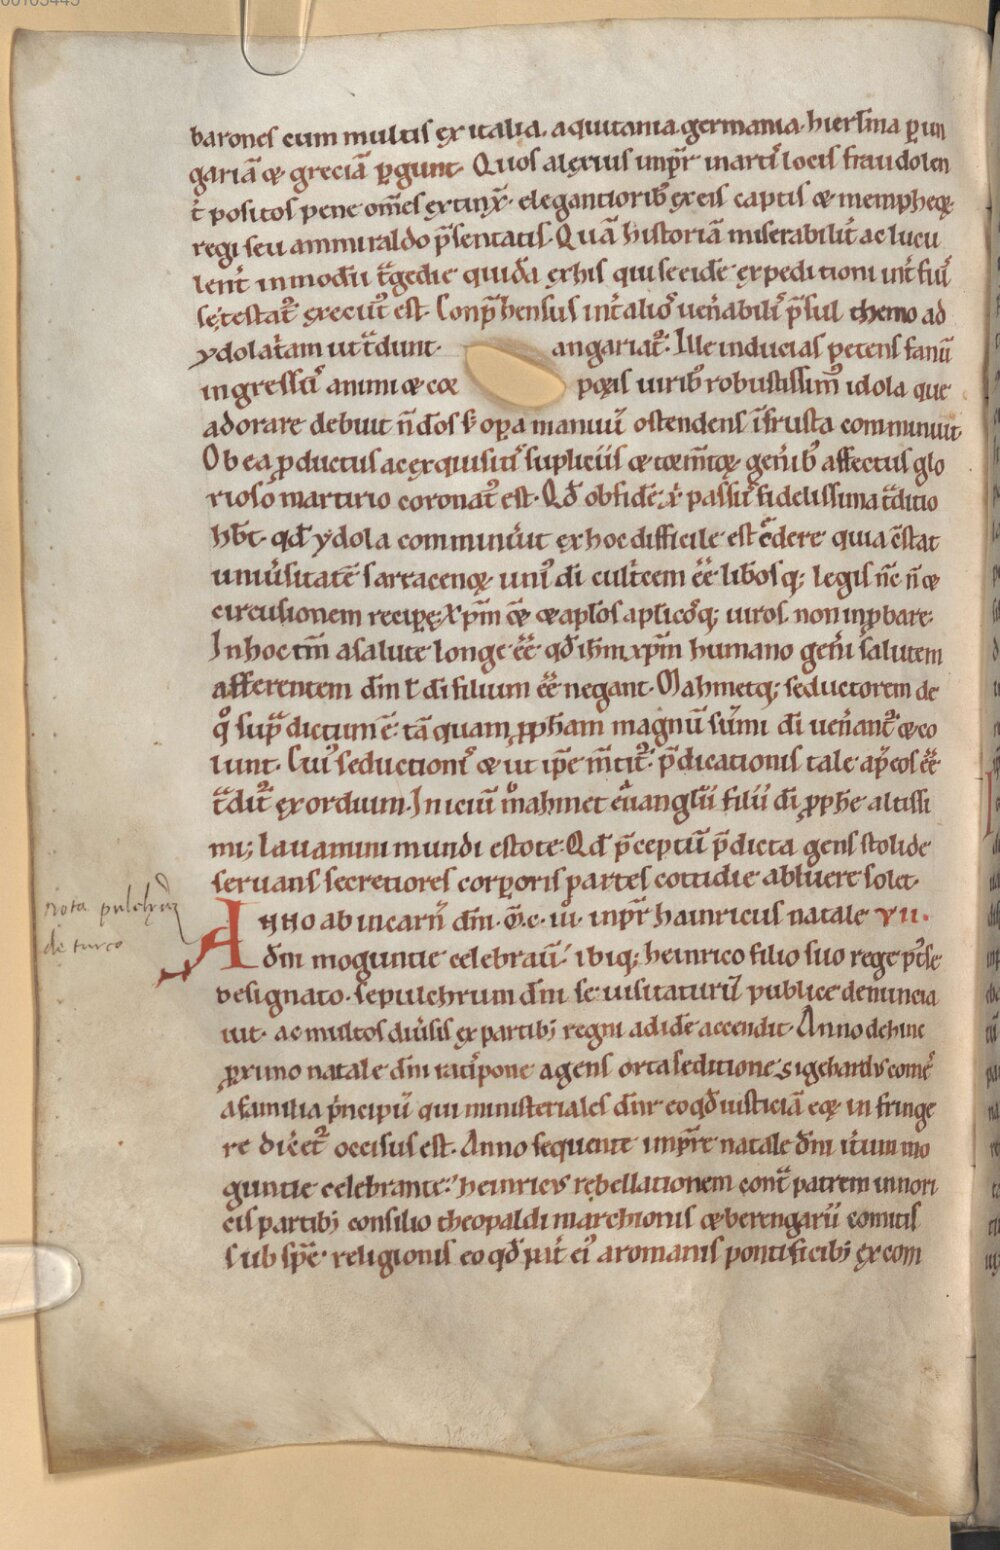 barones cum multis ex italia. aquitania. germania. hierłima ꝑ un
gariā & greciā ꝑgunt. Quos alexius imꝑr̄ in arti locis fraudolen
t̄ positos pene om̄s extinx̄. elegantiorib; ex eis captis & memphę
regi seu ammiraldo p̄sentatis. Quā historiā miserabilit̄ ac lucu
lent̄ in modū tͣgedie quidā ex his qui se eidē expeditioni int̄fuis
se testat᷑ execut᷒ est. Conp̄hensus int̄ alios uen̄abilis p̄sul themo ad
ydolat̄am ut tͣdunt. angariat᷑. Ille inducias petens fanū
ingressus animi & cor poris uirib; robustissim᷒ idola que
adorare debuit n̄ dōs s; opera manuū ostendens ī frusta comminuit.
Ob ea ꝓductus ac exquisitis supliciis & tormentoꝝ gen̄ib; affectus glo
rioso martirio coronat᷒ est. Qd̄ ob fidē xp̄i passus fidelissima tͣditio
hb̄t. qd̄ ydola comminuerit ex hoc difficile est credere quia cōstat
uniūsitatē sarracenoꝝ uni᷒ dī cultricem ēē libros q; legis nc̄ n̄ &
circusionem recipere xp̄m etiā & aplōs aplicosq; uiros non inꝓbare.
In hoc tm̄ a salute longe ēē qd̄ ihm̄ xp̄m humano gen̄i salutem
afferentem dm̄ ł dī filium ēē negant. Mahmetq; seductorem de
qͦ supͣ dictum ē. tāquam ꝓpham magnū sūmi dī uen̄ant᷑ & co
lunt. Cui᷒ seductionis & ut ip̄e m̄tit᷑. p̄dicationis tale ap̄ eos ēē
tͣdit᷑ exordium. Iniciū mͦahmet euangłii filii dī ꝓphe altissi
mi; lauamini mundi estote. Qd̄ p̄ceptū p̄dicta gens stolide
seruans secretiores corporis partes cottidie abluere solet.
nota pulchꝝ
de turco
Anno ab incarn̄ dm̄. ō. c. iii. inꝑr̄ hainricus natale vii.
dm̄ moguntie celebrauit. ibiq; heinrico filio suo rege post se
designato. sepulchrum dm̄ se uisitaturū publice denuncia
uit. ac multos diūsis ex partib; regni ad idē accendit. Anno dehinc
ꝓximo natale dm̄ ratispone agens orta seditione sigehardus comes
a familia p̄ncipū qui ministeriales dn̄r eo qd̄ iusticiā eoꝝ infringe
re dicēt᷑ occisus est. Anno sequente imꝑr̄e natale dm̄ it̄um mo
guntie celebrante. heinricus rebellationem contͣ patrem in nori
cis partib; consilio theopaldi marchionis & berengarii comitis
sub spē religionis eo qd̄ pat̄ ei᷒ a romanis pontificib; excom